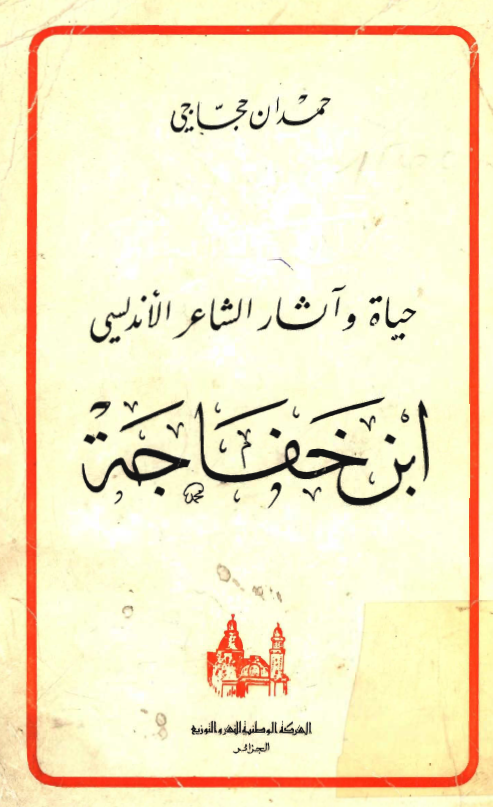 حمدان حجّاجي
حياة وآثار الشاعر الأندلسي
ابن خفاجة
الشركة الوطنية للنشر والتوزيع
الجزائر